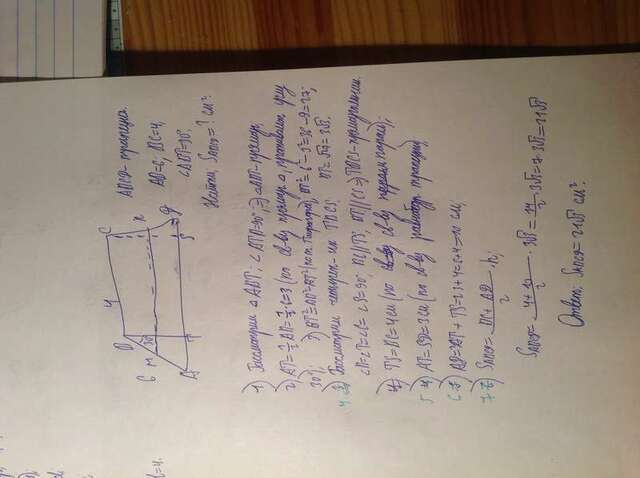 ABCD - трапеция.
AB=6; BC=4,
∠ABT=30°.
Найти, S_ABCD = ? см².
B 4 C
6 M 30° K
A T S D
1) Рассмотрим △ABT; ∠ATB=90°, ⇒ △ABT-прямоуг.
2) AT=½AB=½·6=3 (по св-ву прямоуг. △, против угла
30°); 3) BT²=AB²-AT² (по т. Пифагора), BT²=6²-3²=36-9=27;
BT=√27=3√3.
4) Рассмотрим четырёх-ик TBCS.
∠B=∠T=∠C=∠S=90° BC∥TS, BT∥CS ⇒ TBCS-прямоугольник.
TS=BC=4см (по св-ву
5 AT=SD=3см (по св-ву равнобедр. трапеции)
6 AD=2AT+TS=2·3+4=6+4=10 см;
7 S_ABCD = BC+AD/2 · h,
S_ABCD = 4+10/2 · 3√3 = 14/2 · 3√3 = 7·3√3 = 21√3
Ответ: S_ABCD = 21√3 см².